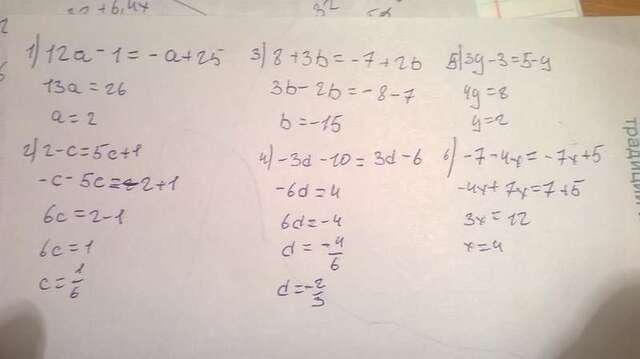 1) 12a - 1 = -a + 25
13a = 26
a = 2
2) 2 - c = 5c + 1
-c - 5c = -2 + 1
6c = 2 - 1
6c = 1
c = 1/6
3) 8 + 3b = -7 + 2b
3b - 2b = -8 - 7
b = -15
4) -3d - 10 = 3d - 6
-6d = 4
6d = -4
d = -4/6
d = -2/3
5) 3y - 3 = 5 - y
4y = 8
y = 2
6) -7 - 4x = -7x + 5
-4x + 7x = 7 + 5
3x = 12
x = 4
традиции